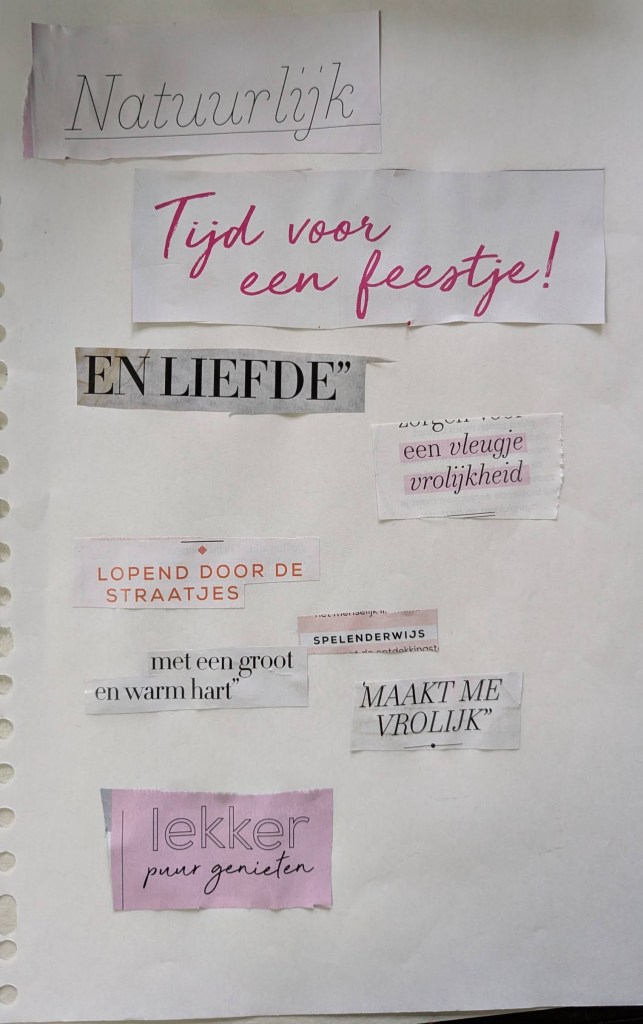 Natuurlijk
Tijd voor
een feestje!
EN LIEFDE”
zorgen voor
een vleugje
vrolijkheid
LOPEND DOOR DE
STRAATJES
SPELENDERWIJS
met een groot
en warm hart”
'MAAKT ME
VROLIJK”
lekker
puur genieten